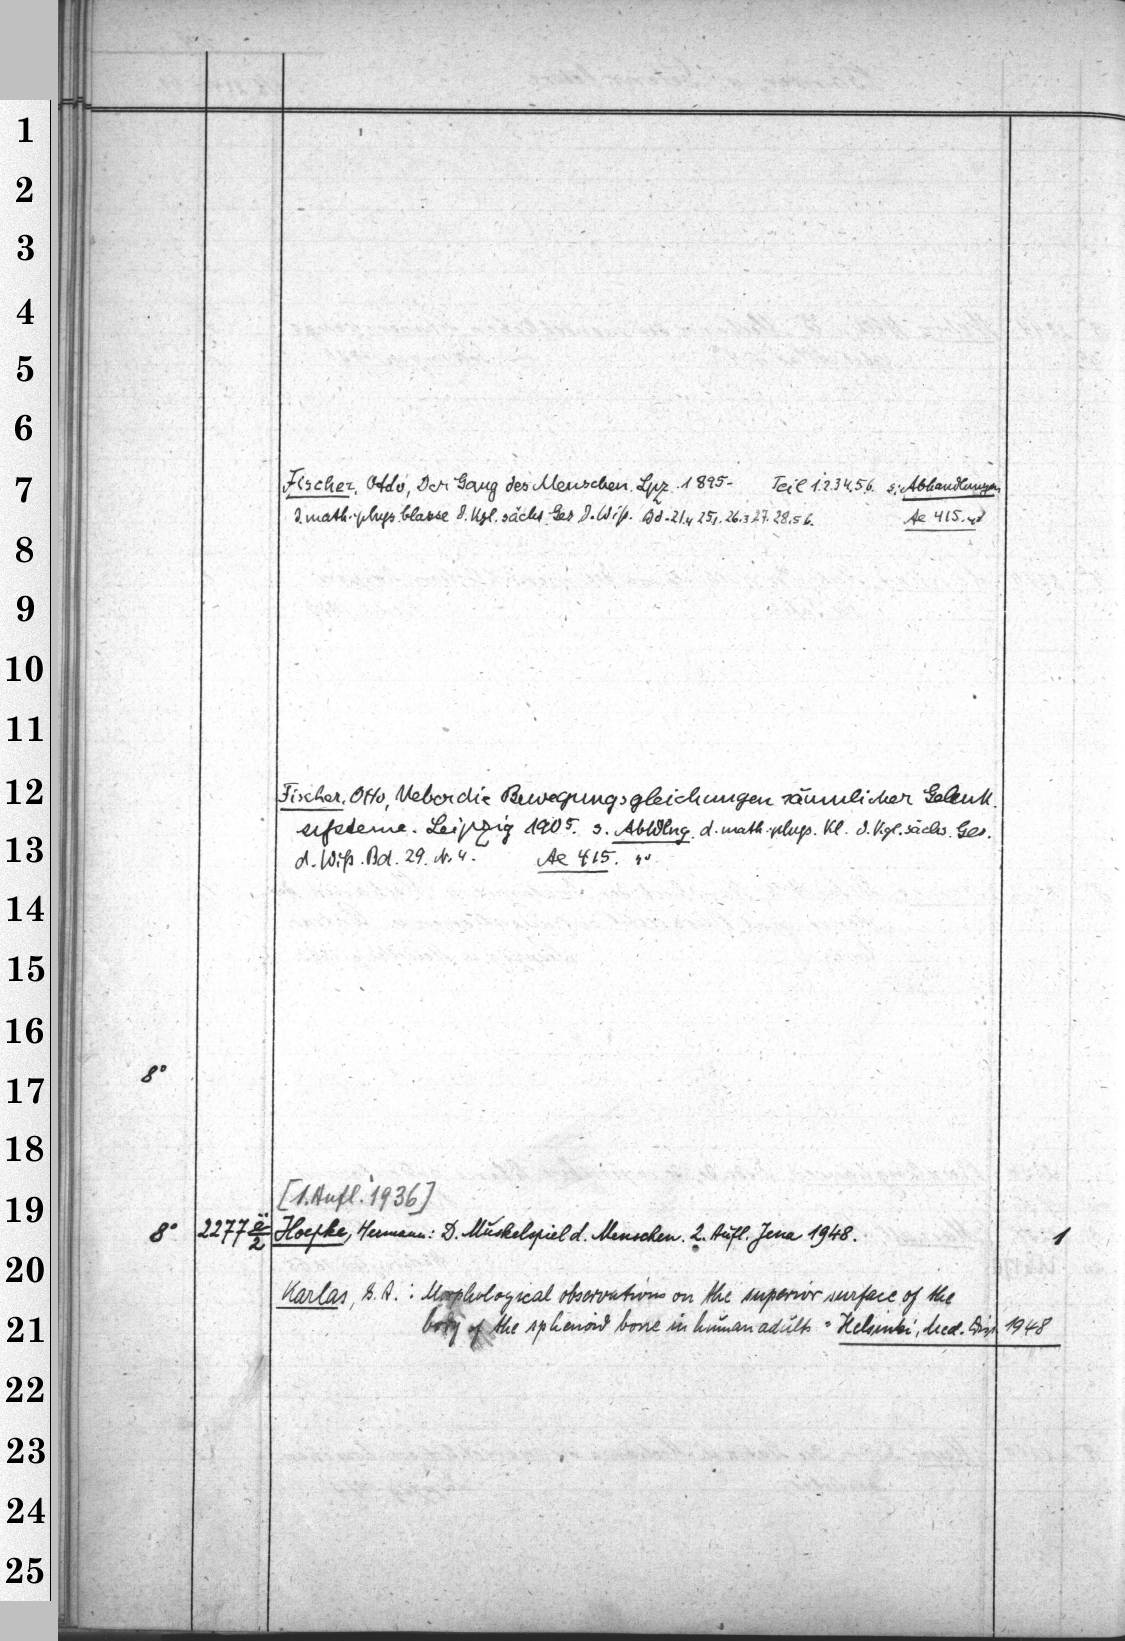 1
2
3
4
5
6
7
Fischer, Otto, Der Gang des Menschen. Lpz. 1895- Teil 1.2.3.4.5.6. s. Abhandlungen
d. math.-phys. Classe d. Kgl. sächs. Ges. d. Wiß. Bd. 21,4 25,1. 26.3 27. 28.5 6. Ae 415. 4°
8
9
10
11
12
Fischer, Otto, Ueber die Bewegungsgleichungen räumlicher Gelenk-
systeme. Leipzig 1905. s. Abhdlng. d. math.-phys. Kl. d. Kgl. sächs. Ges.
13
d. Wiß. Bd. 29. N. 4. Ae 415. 4°
14
15
16
8°
17
18
[1. Aufl. 1936]
19
8° 2277 ë/2 Hoepke, Hermann: D. Muskelspiel d. Menschen. 2. Aufl. Jena 1948. 1
20
Karlas, G. A.: Morphological observations on the superior surface of the
21
body of the sphenoid bone in human adults = Helsinki, Med. Diss. 1948
22
23
24
25